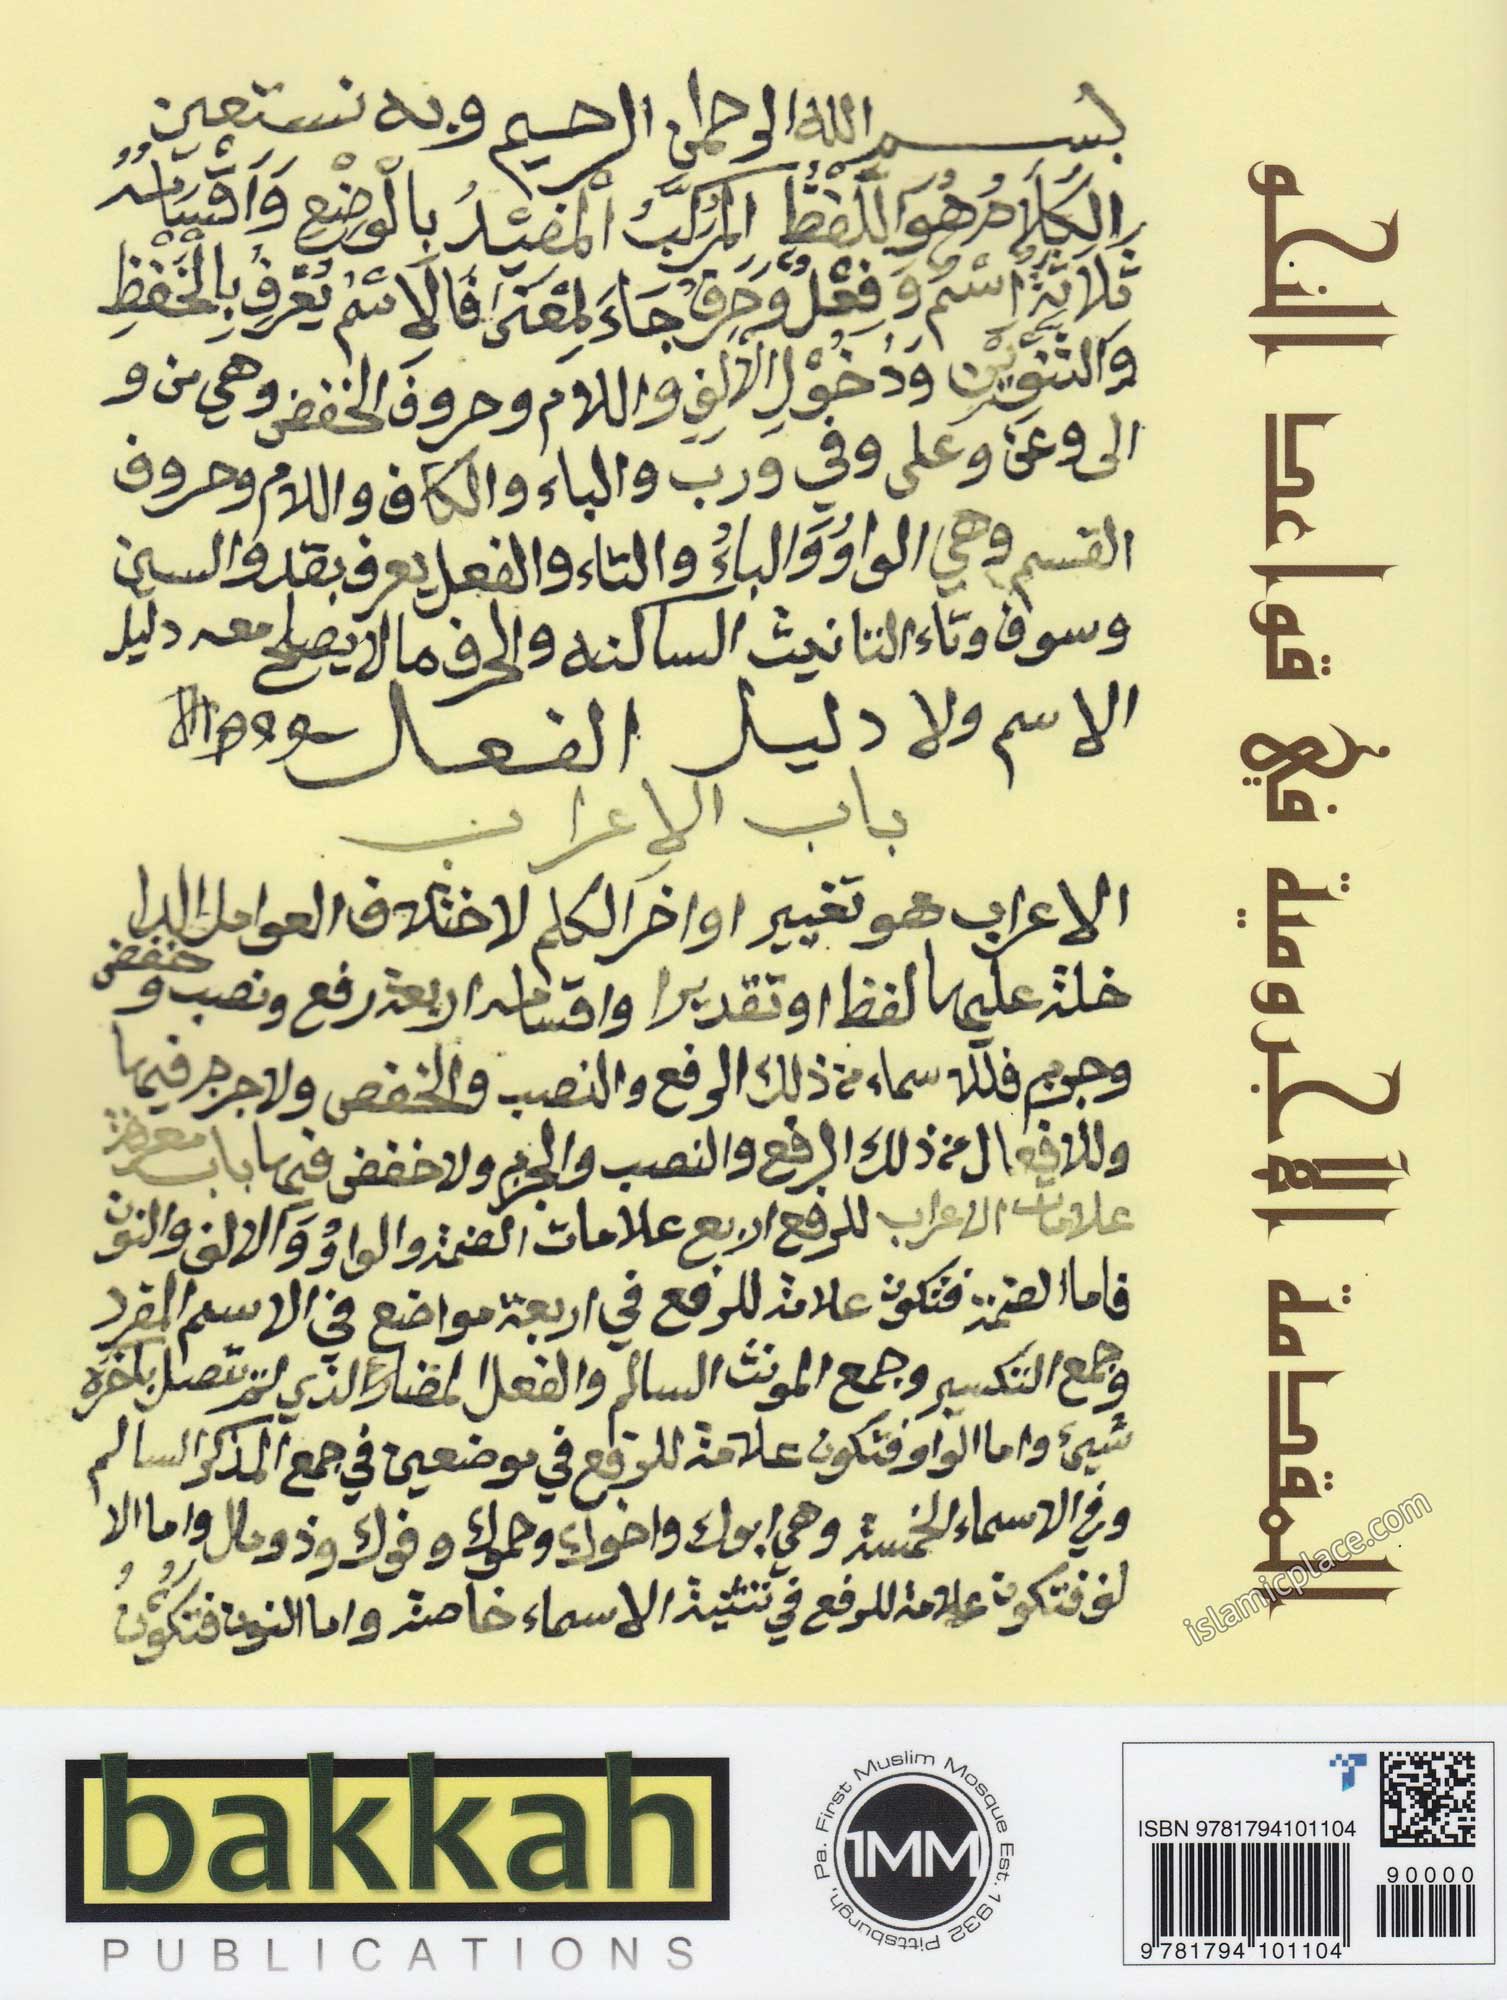 بسم الله الرحمان الرحيم وبه نستعين
الكَلَامُ هُوَ اللَّفْظُ المُرَكَّبُ الْمُفِيْدُ بِالْوَضْعِ وَأَقْسَامُهُ
ثَلَاثَةٌ اِسْمٌ وَفِعْلٌ وَحَرْفٌ جَاءَ لِمَعْنَى فَالْاِسْمُ يُعْرَفُ بِالْخَفْظِ
وَالتَّنْوِيْنِ وَدُخُوْلِ الْاَلِفِ واللام وحروف الخفض وهي من و
الى وعن وعلى وفي ورب والباء والكاف واللام وحروف
القسم وهي الواوُ وَالباءُ والتاء والفعل يعرف بقد والسين
وسوف وتاء التانيث الساكنه والحرف مالا يصلح معه دليل
الاسم ولا دليل الفعل
باب الإعراب
الاعراب هو تغيير اواخر الكلم لاختلاف العوامل الدا
خلة عليها لفظا او تقديرا واقسامه اربعة رفع ونصب وخفض
وجزم فللاسماء من ذلك الرفع والنصب والخفص ولا جزم فيها
وللافعال من ذلك الرفع والنصب والجزم ولا خفض فيها باب معرفة
علامات الاعراب للرفع اربع علامات الضمة والواوُ وَالالف والنون
فاما الضمة فتكون علامة للرفع في اربعة مواضع في الاسم المفرد
وجمع التكسير وجمع المونث السالم والفعل المضارع الذي لم يتصل بآخره
شيئ واما الواو فتكون علامة للرفع في موضعين في جمع المذكر السالم
وفي الاسماء الخمسة وهي ابوك واخوك وحموك وفوك وذو مال واما الا
لف فتكون علامة للرفع في تثنية الاسماء خاصة واما النون فتكُونُ
المقدمة الآجرومية في قواعد النحو
islamicplace.com
bakkah
PUBLICATIONS
Pa. First Muslim Mosque Est. 1932 Pittsburgh,
1MM
ISBN 9781794101104
90000
9 781794 101104